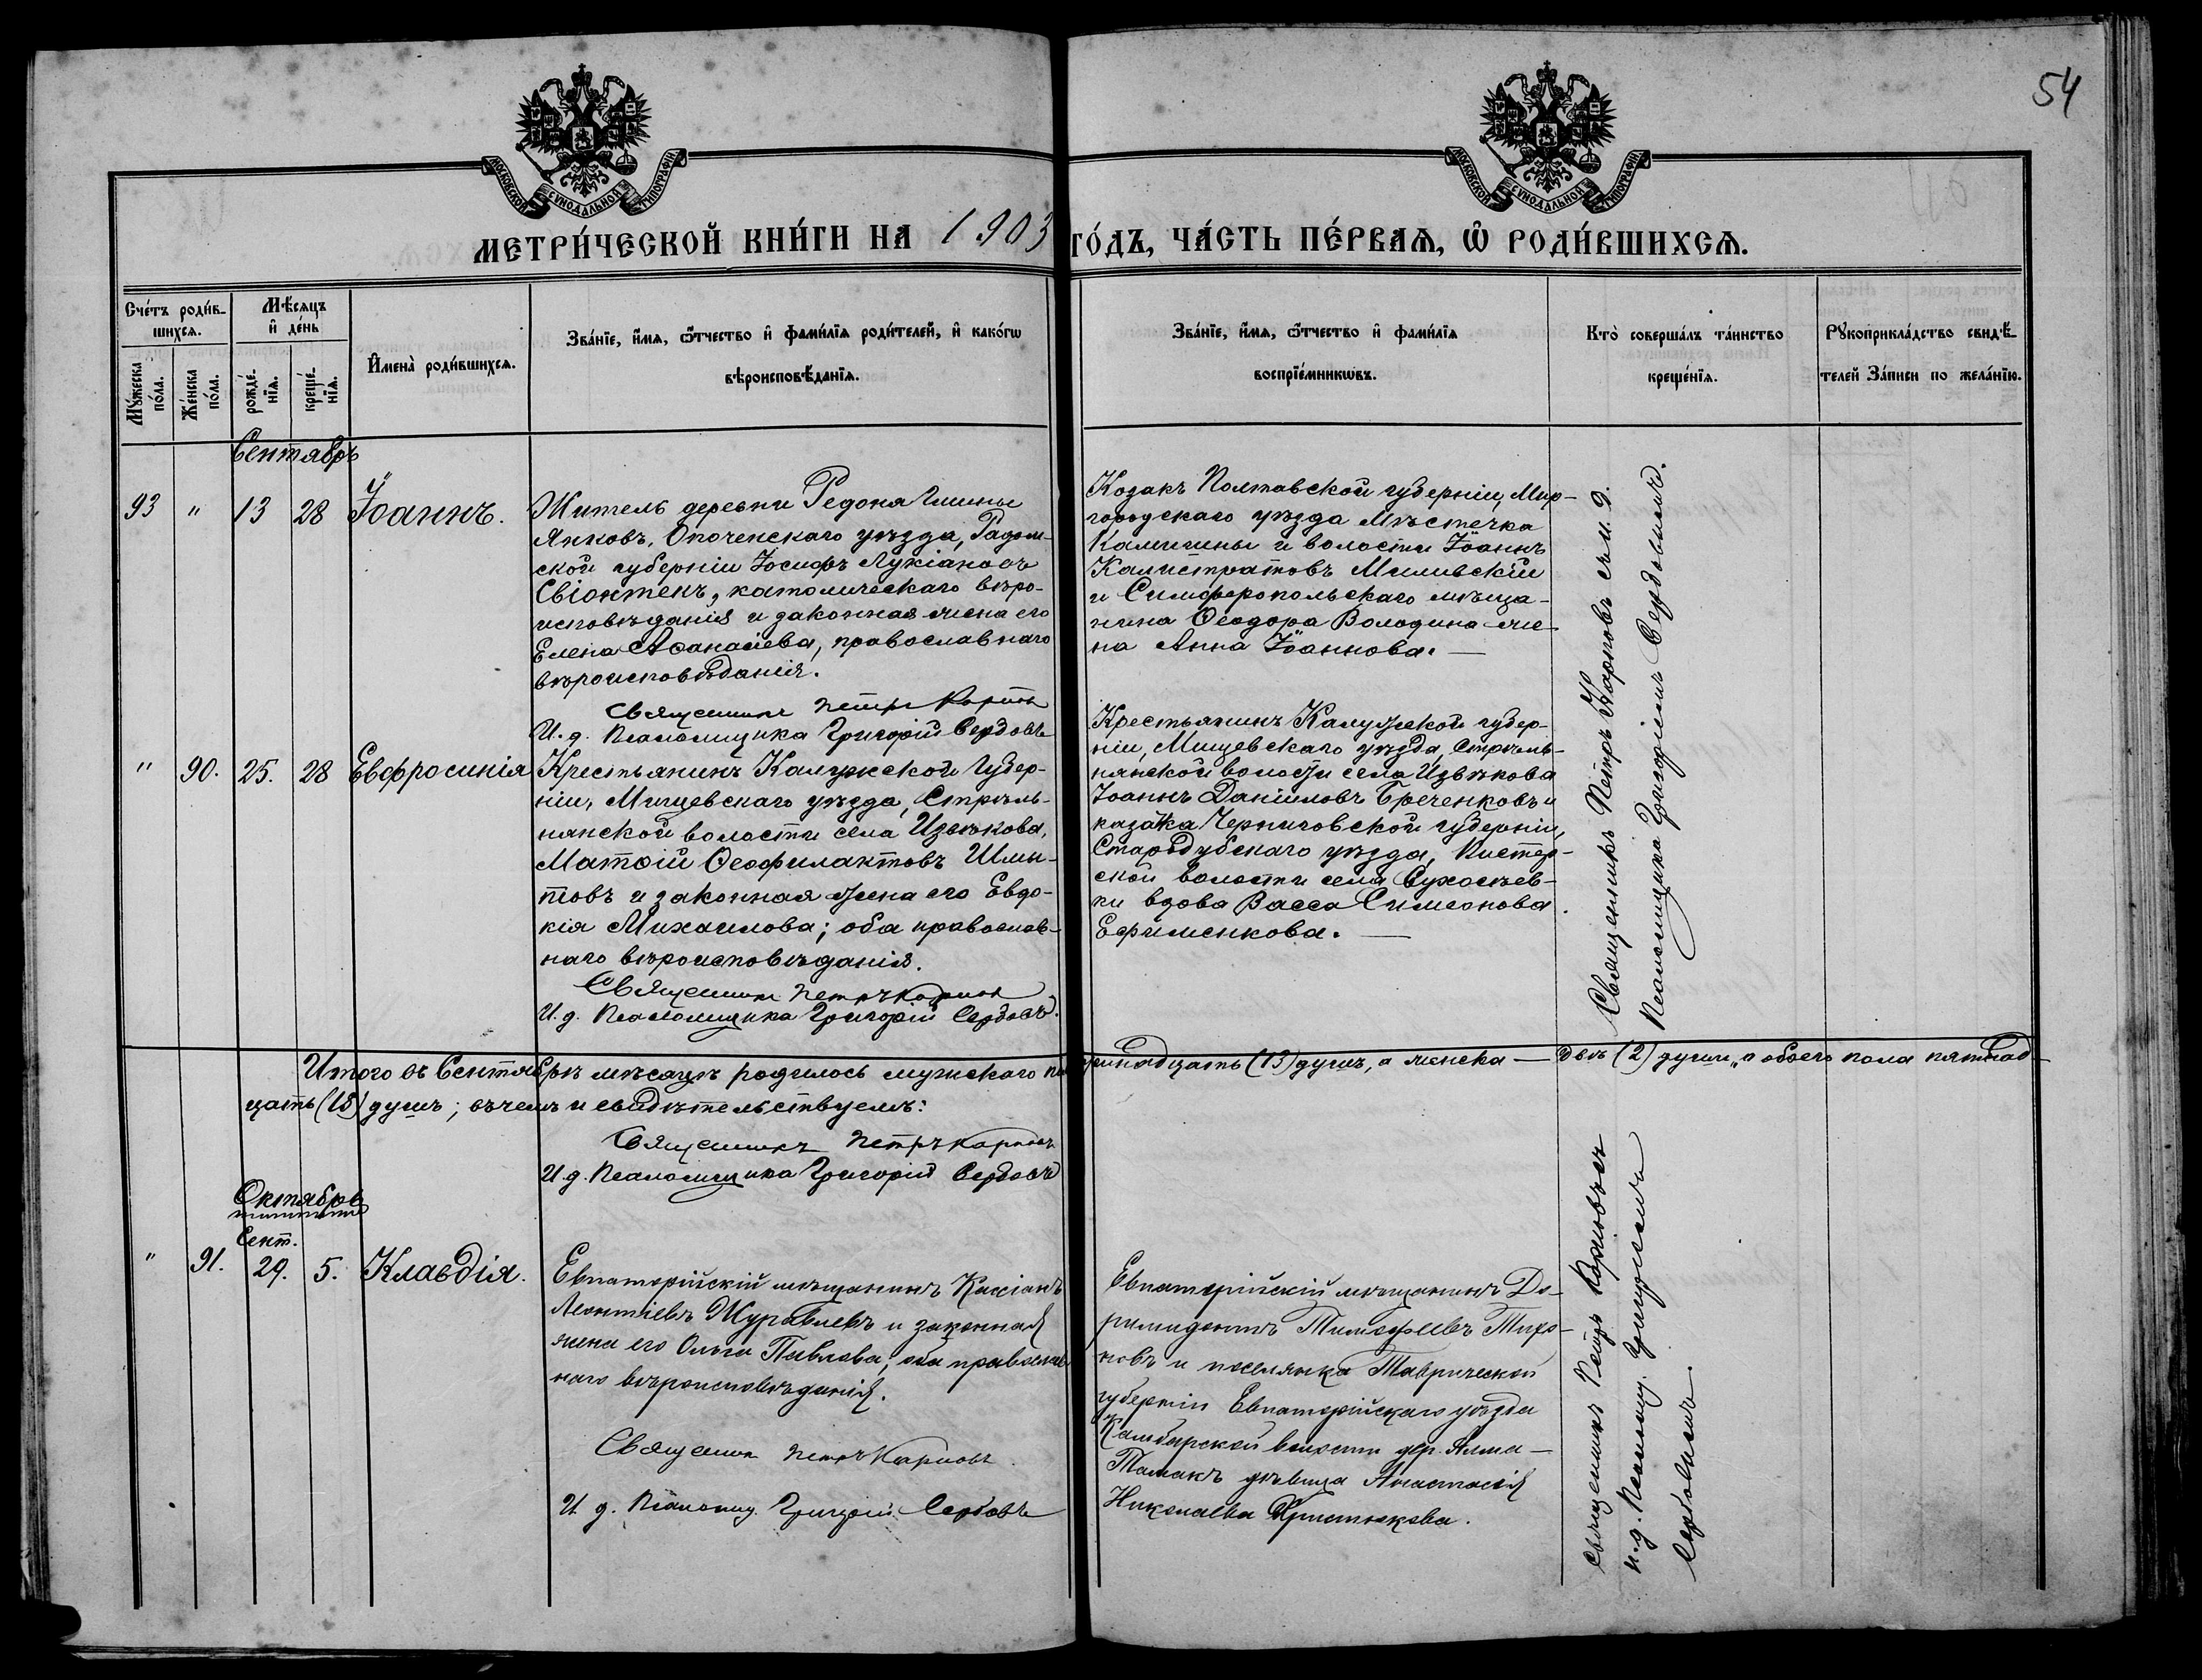 54
МОСКОВСКОЙ СУНОДАЛЬНОЙ ТИПОГРАФІИ
МОСКОВСКОЙ СУНОДАЛЬНОЙ ТИПОГРАФІИ
МЕТРИ́ЧЕСКОЙ КНИ́ГИ НА 1903 ГО́ДЪ, ЧА́СТЬ ПЕ́РВАѦ, Ѽ РОДИ́ВШИХСѦ.
Сче́тъ роди́в-
шихсѧ.
Мꙋ́жеска по́ла.
Же́нска по́ла.
Мѣ́сѧцъ
и҆ де́нь
рожде́-
нїѧ.
креще́-
нїѧ.
И҆мена̀ роди́вшихсѧ.
Зва́нїе, и҆́мѧ, ѻ҆́тчество и҆ фами́лїѧ роди́телей, и҆ како́гѡ
вѣроисповѣ́данїѧ.
Зва́нїе, и҆́мѧ, ѻ҆́тчество и҆ фами́лїѧ
воспрїе́мникѡвъ.
Кто̀ соверша́лъ та́инство
креще́нїѧ.
Рꙋкоприкла́дство свидѣ́-
телей За́писи по жела́нїю.
Сентябрь
93 " 13 28 Іоаннъ.
Житель деревни Редоня Глины
Янковъ, Опоченскаго уѣзда, Радом-
ской губерніи Іосифъ Лукіановъ
Свіонтекъ, католическаго вѣро-
исповѣданія и законная жена его
Елена Аѳанасіева, православнаго
вѣроисповѣданія.
Священникъ Петръ Карповъ
И. д. Псаломщика Григорій Сердовъ
Козакъ Полтавской губерніи, Мир-
городскаго уѣзда Мѣстечка
Камишны и волости Іоаннъ
Калистратовъ Миливскій
и Симферопольскаго мѣща-
нина Ѳеодора Володина же-
на Анна Іоаннова. —
Священникъ Петръ Карповъ съ и. д.
Псаломщика Григоріемъ Сердовымъ.
" 90. 25. 28 Евфросинія
Крестьянинъ Калужской Губер-
ніи, Мищевскаго уѣзда, Стрѣль-
нянской волости села Извѣкова,
Матѳій Ѳеофилактовъ Шмы-
товъ и законная жена его Евдо-
кія Михаилова; оба православ-
наго вѣроисповѣданія.
Священникъ Петръ Карповъ
И. д. Псаломщика Григорій Сердовъ.
Крестьянинъ Калужской губер-
ніи, Мищевскаго уѣзда, Стрѣль-
нянской волости села Извѣкова
Іоаннъ Даніиловъ Бреченковъ и
казачка Черниговской губерніи,
Стародубскаго уѣзда, Кистер-
ской волости села Сухосѣев-
ки вдова Васса Симеонова
Ефименкова. —
Итого въ Сентябрѣ мѣсяцѣ родилось мужскаго по тринадцать (13) душъ, а женска — двѣ (2) души, а обоего пола пятнад-
цать (15) душъ; въ чемъ и свидѣтельствуемъ:
Священникъ Петръ Карповъ
И. д. Псаломщика Григорій Сердовъ
Октябрь
Сент.
" 91. 29. 5. Клавдія.
Евпаторійскій мѣщанинъ Кассіанъ
Леонтіевъ Журавлевъ и законная
жена его Ольга Павлова; оба православ
наго вѣроисповѣданія.
Священникъ Петръ Карповъ
И. д. Псаломщ. Григорій Сердовъ
Евпаторійскій мѣщанинъ До-
римидонтъ Тимофеевъ Тихо-
новъ и поселянка Таврической
губерніи Евпаторійскаго уѣзда
Камбарской волости дер. Алма-
Тамакъ дѣвица Анастасія
Николаева Христюкова.
Священникъ Петръ Карповъ съ
и. д. Псаломщ. Григоріемъ
Сердовымъ.